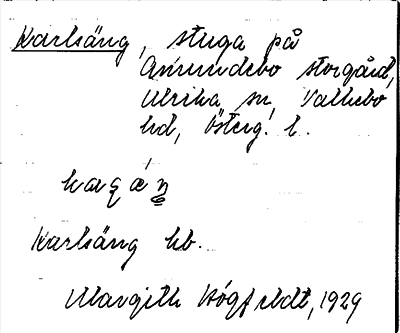 Karlsäng, stuga på
Amundebo storgård,
Ulrika sn, Vallebo
hd, Österg. l.
Karlsäng hb.
Margith Högfeldt, 1929